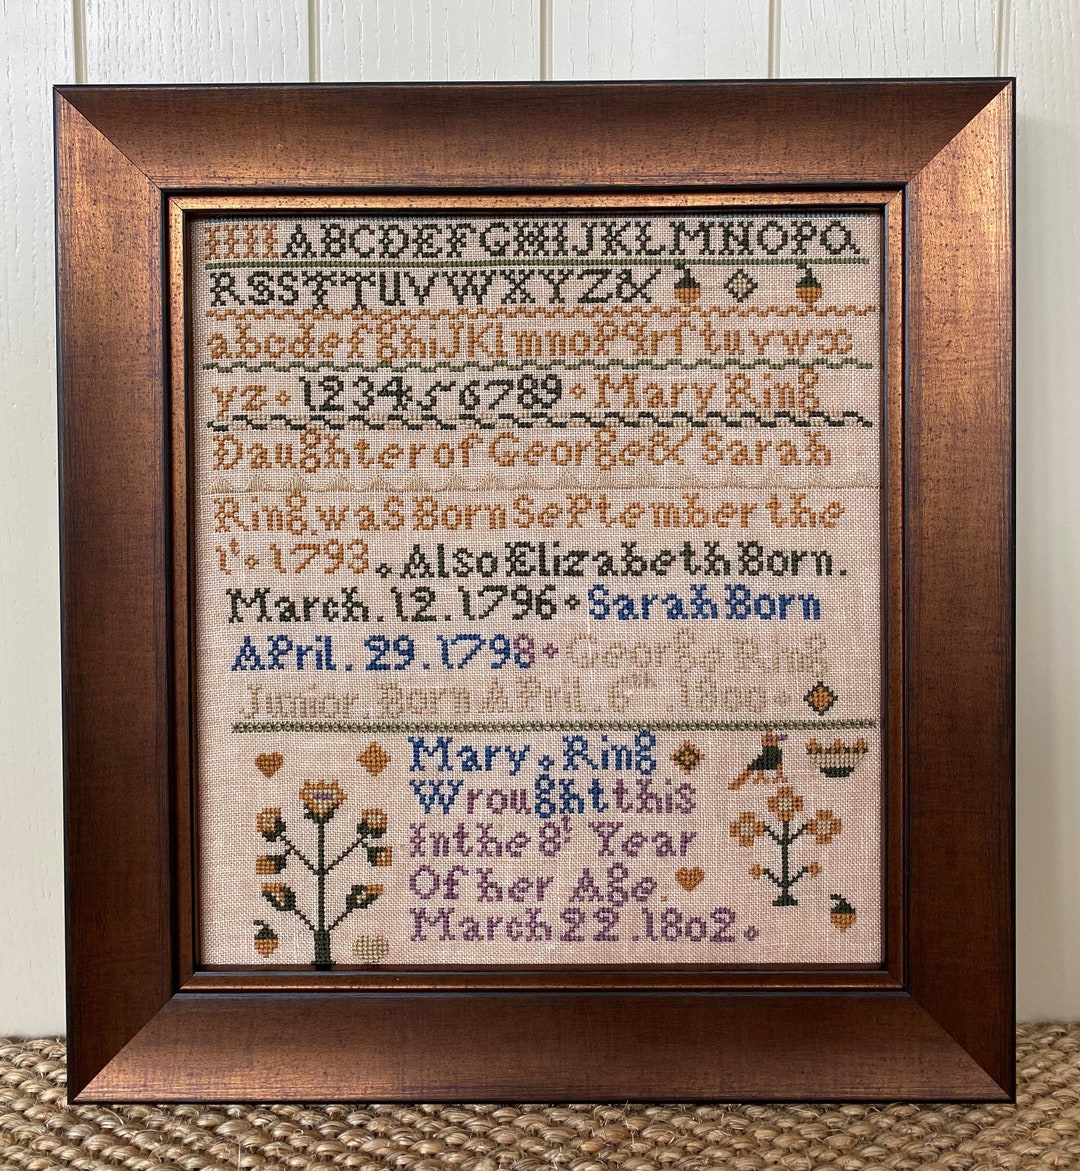 ABCDEFGHIJKLMNOPQ
RSSTTUVWXYZ&
abcdefghiJKlmnoPqrſtuvwx
yz 123456789 Mary Ring
Daughter of George & Sarah
Ring was Born SePtember the
1t 1793 Also Elizabeth Born.
March. 12. 1796 Sarah Born
APril. 29. 1798 George Ring
Junior Born APril. 6th 1800
Mary Ring
Wrought this
In the 8t Year
Of her Age.
March 22. 1802